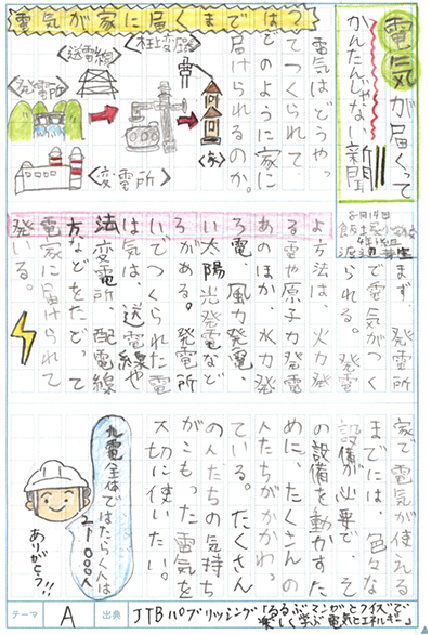 電気が届くって
かんたんじゃない新聞
8月14日
4年1組
電気が家に届くまでは
電気はどうやっ
てつくられて、
どのように家に
届けられるのか。
〈発電所〉
〈送電線〉
〈変電所〉
〈柱上変圧器〉
〈家〉
発電方法はいろいろあるよ
まず、発電所
で電気がつく
られる。発電
方法は、火力発
電や原子力発電
のほか、水力発
電、風力発電、
太陽光発電など
がある。発電所
でつくられた電
気は、送電線や
変電所、配電線
などをたどって
家に届けられて
いる。
家で電気が使える
までには、色々な
設備が必要で、そ
の設備を動かすた
めに、たくさんの
人たちがかかわっ
ている。たくさん
の人たちの気持ち
がこもった電気を
大切に使いたい。
九電全体ではたらく人は
21000人
ありがとう!!
テーマ A 出典 JTBパブリッシング「るるぶマンガとクイズで
楽しく学ぶ電気とエネルギー」